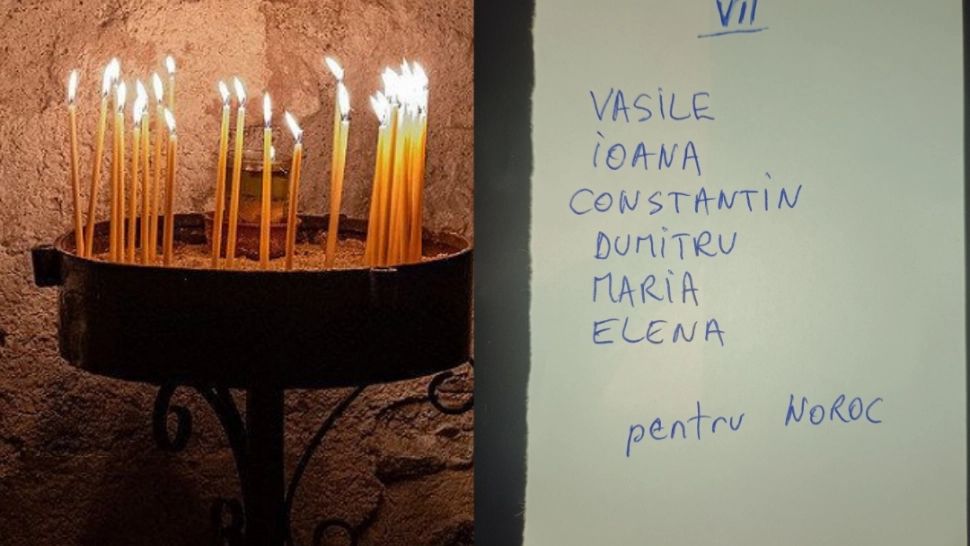 VII
VASILE
IOANA
CONSTANTIN
DUMITRU
MARIA
ELENA
pentru NOROC